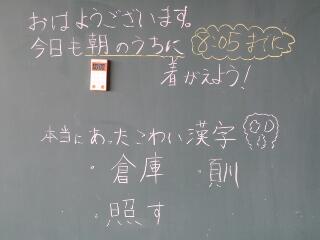 おはようございます。
今日も朝のうちに 8:05までに
着がえよう!
本当にあったこわい漢字
・倉庫 ・順
・照す